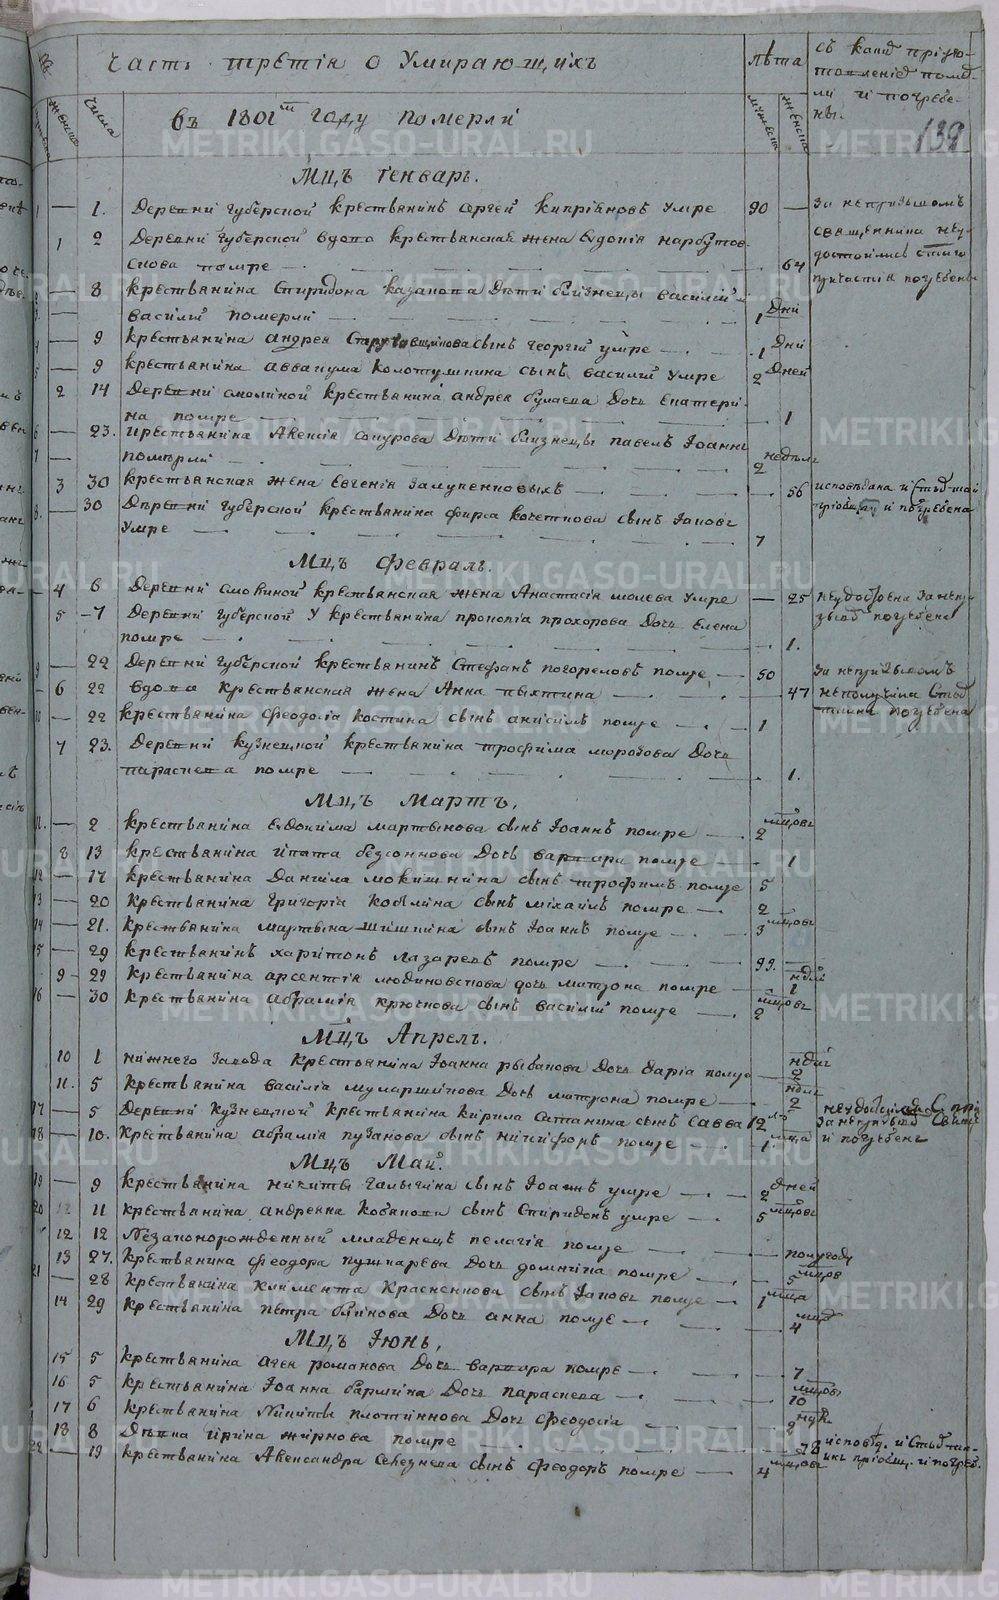 Часть третія о Умирающихъ
лѣта
съ коимъ пріуго-
товленіем помер-
ли и погребе-
ны.
числа
мужеска
женска
въ 1801м году померли
139
Мцъ генварь.
1 — 1. Деревни губерской крестьянинъ сергей кипріяновъ умре 90 —
за непризывомъ
1 2 Деревни губерской вдова крестьянская жена евдокія нарбутов-
священника неу-
скова помре 64
достоились
причастія погребены
— 8 крестьянина Спиридона казанова дѣти близнецы василий и
василий померли 1 Дни
4 — 9 крестьянина андрея сынъ георгий умре 1 Дни
5 — 9 крестьянина аввакума колотушкина сынъ василий умре 2 Дней
2 14 Деревни смолиной крестьянина андрея булаева дочь екатери-
на помре 1
6 — 23. крестьянина Алексія дѣти близнецы павелъ Іоаннъ
7 — померли 2 недѣль
3 30 крестьянская жена евгенія 56
исповѣдана и
пріобщ и погребена
8. — 30 Деревни губерской крестьянина фирса кочеткова сынъ Іаковъ
умре 7
Мцъ февраль.
4 6 Деревни смолиной крестьянская жена Анастасія молева умре — 25
неудостоена за непри-
зывом погребена
5 7 Деревни губерской у крестьянина прокопія прохорова дочь елена
помре 1.
9 — 22 Деревни губерской крестьянинъ Стефанъ погореловъ помре 50
за непризывомъ
6 22 вдова крестьянская жена Анна пыхтина 47
неполучила
погребена
10 — 22 крестьянина феодосія костина сынъ анисимъ помре 1
7 23. Деревни кузнецкой крестьянина трофима морозова дочь
параскева помре 1.
Мцъ Мартъ,
11. — 2 крестьянина евдокима мартынова сынъ Іоаннъ помре 2 мцовъ
8 13 крестьянина ипата безсоннова дочь варвара помре 1
12 — 17 крестьянина Даниила мокишнина сынъ трофимъ помре 5
13 — 20 крестьянина григорія кобелина сынъ михаилъ помре 2
14 — 21. крестьянина мартына шишкина сынъ Іоаннъ помре 3 мцовъ
15 — 29 крестьянинъ харитонъ лазаревъ помре 99. —
9 29 крестьянина арсентія людиновскова дочь матрона помре 1 ндль
16 — 30 крестьянина абрамія крючкова сынъ василий помре 2 мцовъ
Мцъ Апрель.
10 1 нижнего завода крестьянина Іоанна рыбакова дочь дарія помре 2
11. 5 крестьянина василія муларшикова дочь матрона помре 2
17 — 5 Деревни кузнецкой крестьянина кирила саттанина сынъ Савва 12
неудостоился
за непризывом
18 — 10. крестьянина абрамія пузанова сынъ никифонъ помре 1. мца
и погребенъ
Мцъ Май.
19 — 9 крестьянина никиты галыгина сынъ Іоаннъ умре 2 дней
20 11 крестьянина андреяна кобанова сынъ Спиридонъ умре 5 мцовъ
12 12 Незаконорожденный младенецъ пелагія помре полугоду
13 27. крестьянина феодора пушкарева дочь домникіа помре 5 мцов
21 — 28 крестьянина климента красненкова сынъ Іаковъ помре 1 мца
14 29 крестьянина петра блинова дочь анна помре 4 мцов
Мцъ Іюнь,
15 5 крестьянина агея романова дочь варвара помре 7
16 5 крестьянина Іоанна бармина дочь параскева 10 мцовъ
17 6 крестьянина Никиты плотникова дочь феодосіа 2
18 8 Дѣвка ирина жирнова помре 78
исповѣд. и
пріобщ. и погреб.
22 — 19 крестьянина Александра Селезнева сынъ феодоръ помре 4 мцовъ
METRIKI.GASO-URAL.RU